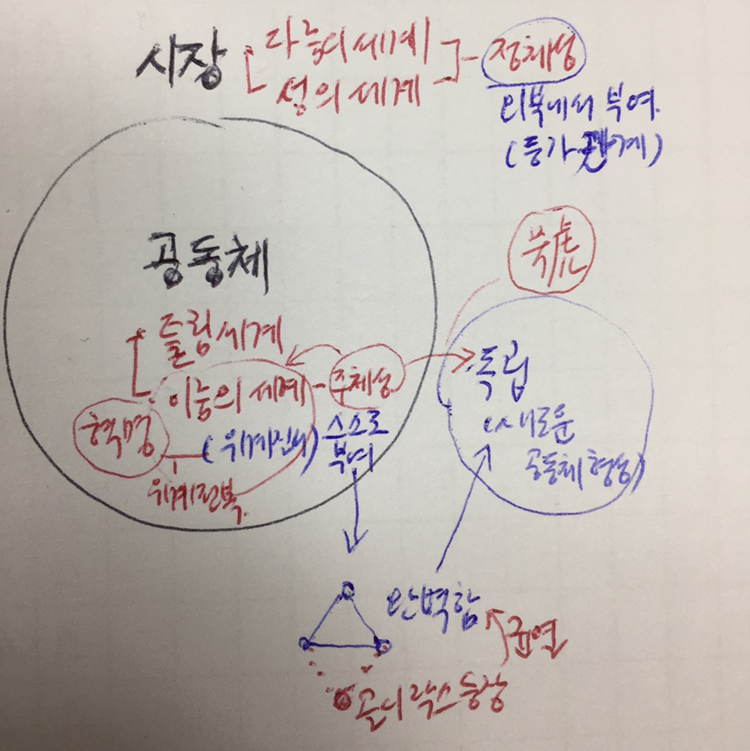 시장 [ 다능의 세계
성의 세계 ] - 정체성
외부에서 부여.
(등가관계)
공동체
틀림 세계
이능의 세계 - 주체성
혁명
(위계질서) 스스로
부여
위계전복.
독립
(새로운
공동체 형성)
완벽함
균열
등장